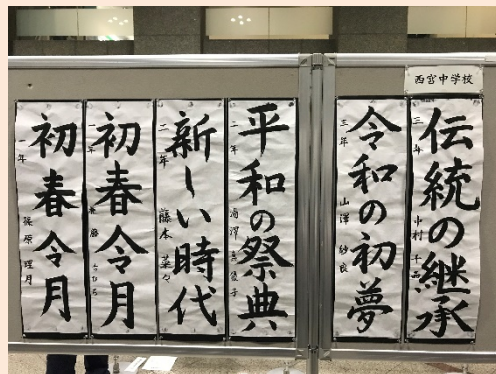 西宮中学校
伝統の継承
三年 中村
令和の初夢
三年 山澤 紗良
平和の祭典
二年
新しい時代
二年 藤本 菜々
初春令月
一年
初春令月
一年 篠原 理月